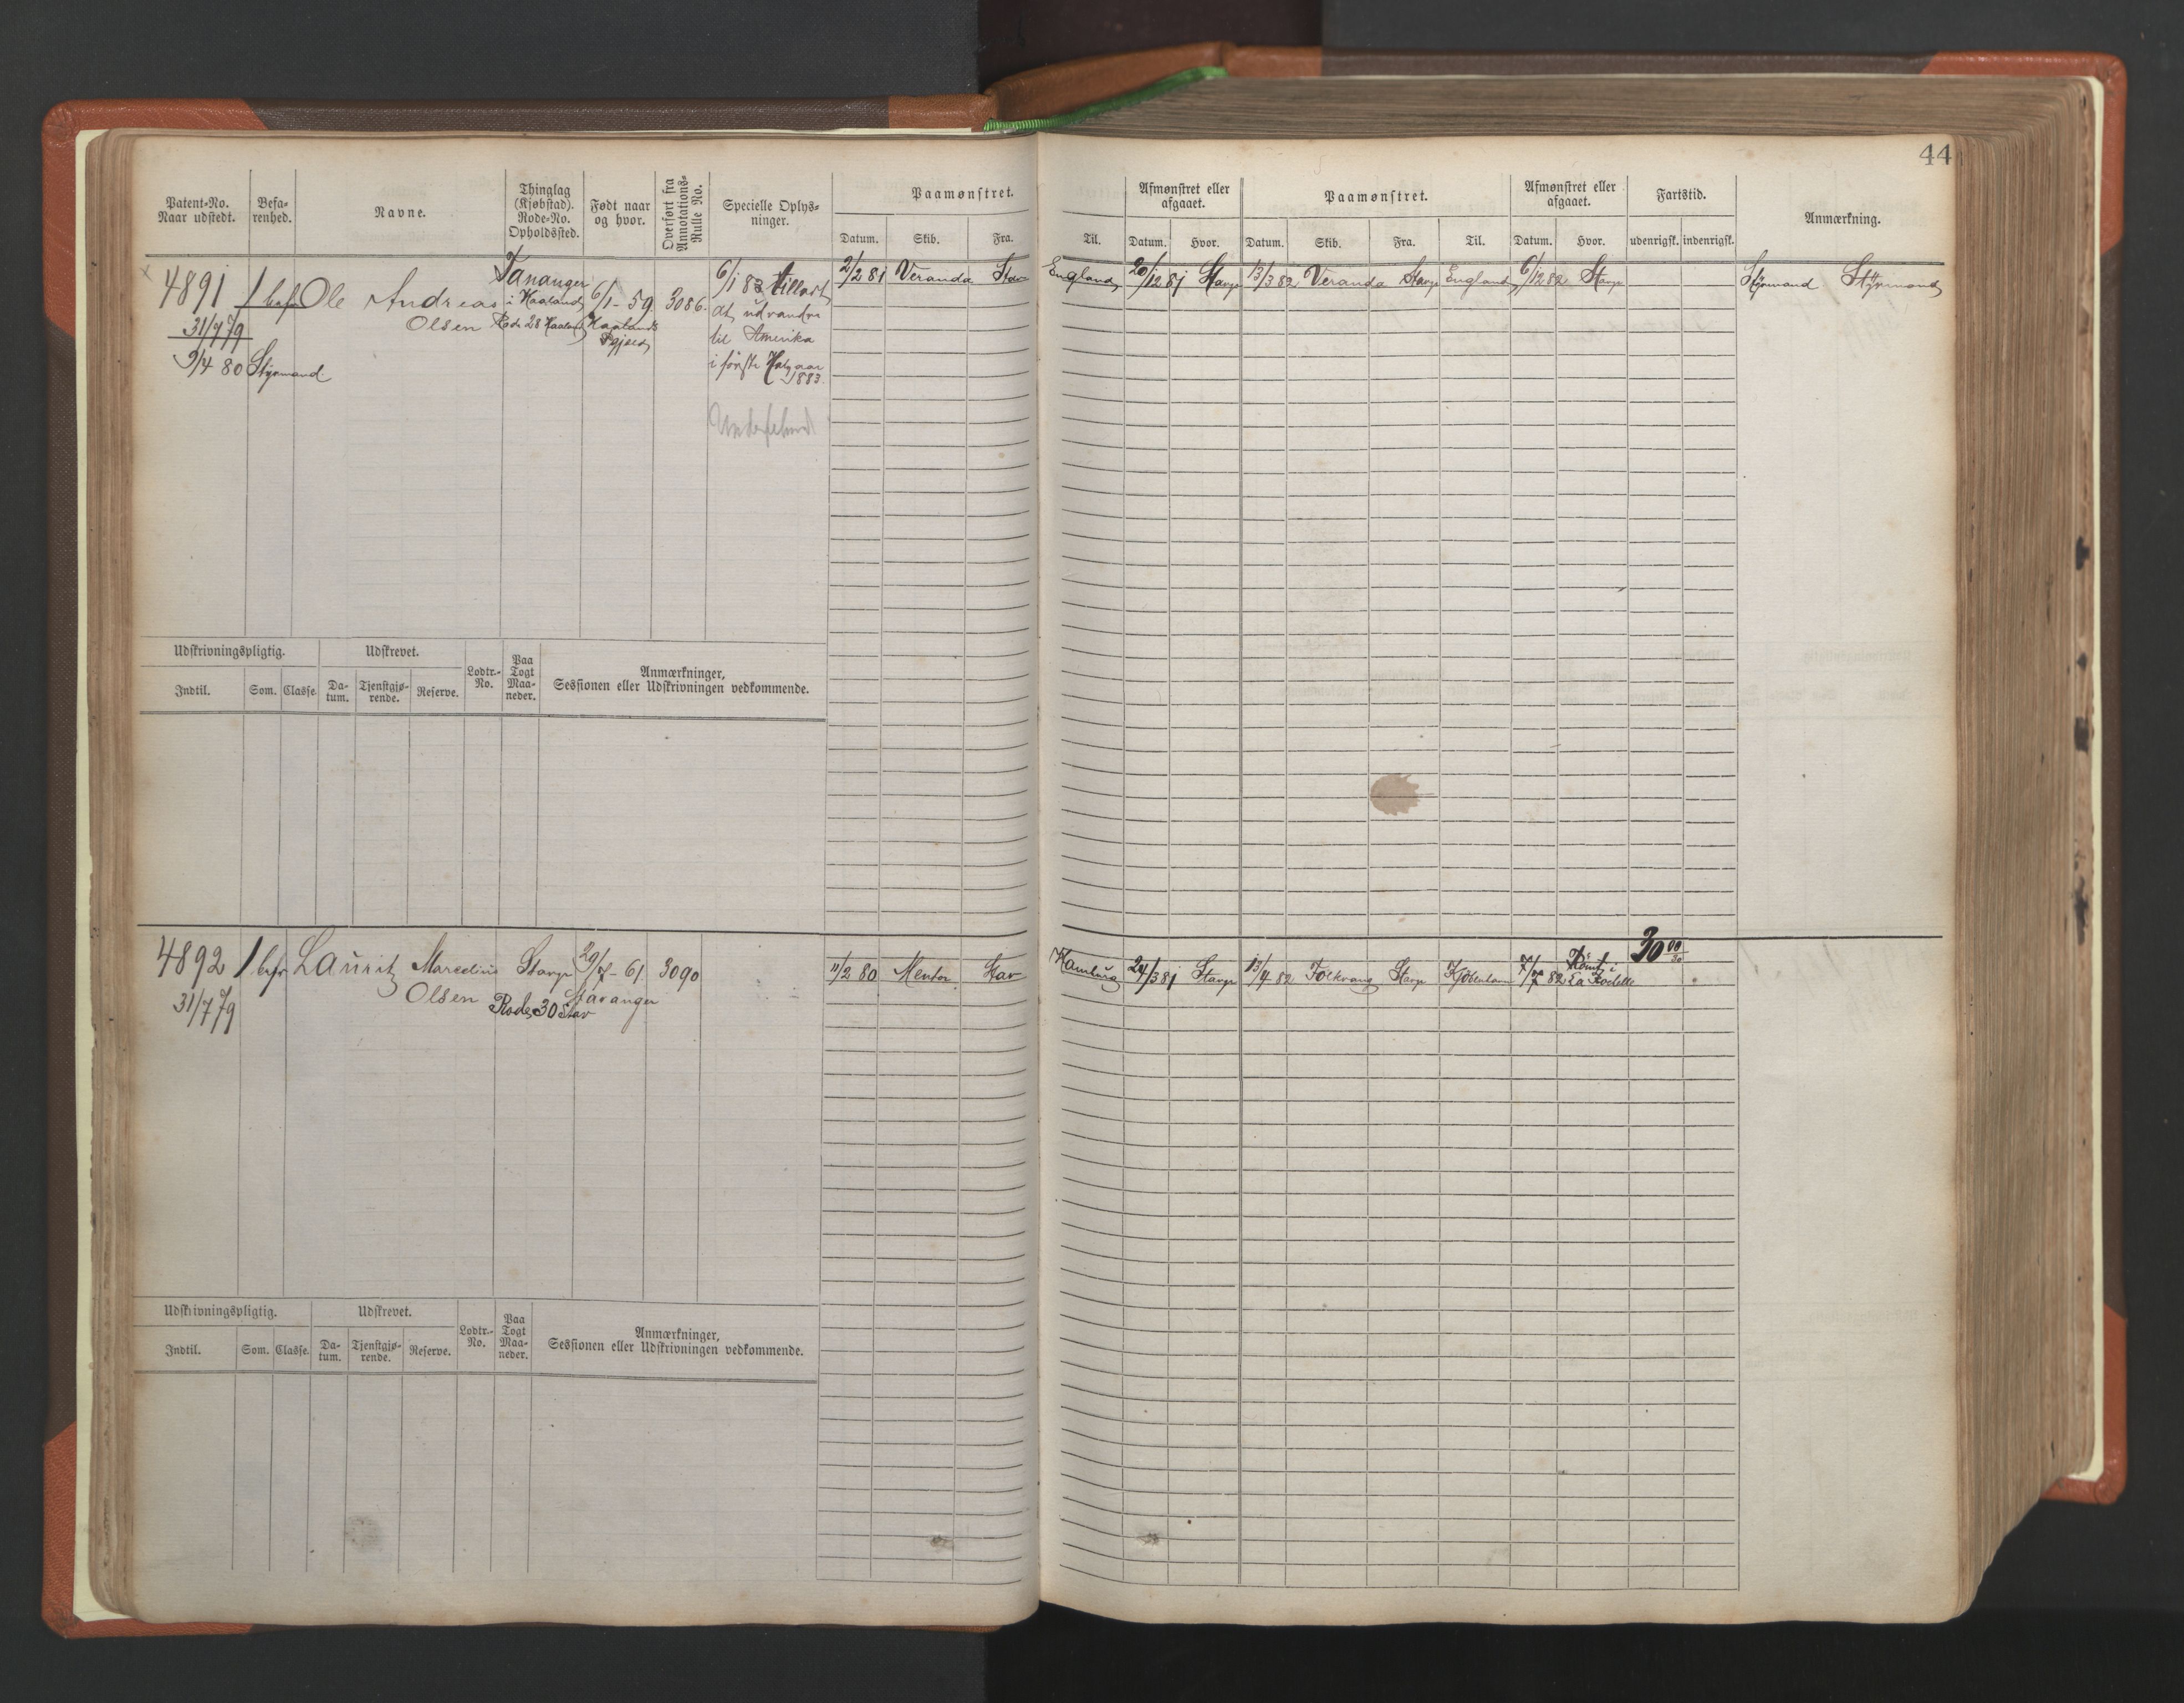 44
Patent-No. Naar udstedt.
Befa-renhed.
Navne.
Thinglag (Kjøbstad). Rode-No. Opholdssted.
Født naar og hvor.
Overført fra Annotations-Rulle No.
Specielle Oplys-ninger.
Paamønstret.
Datum. Skib. Fra. Til.
Afmønstret eller afgaaet.
Datum. Hvor.
Paamønstret.
Datum. Skib. Fra. Til.
Afmønstret eller afgaaet.
Datum. Hvor.
Fartstid.
udenrigsk. indenrigsk.
Anmærkning.
4891 1 befr Ole Andreas Tananger 6/1-59 3086 6/1 83 tilladt 2/2 81 Veranda Stav England 20/12 81 Stavgr 13/3 82 Veranda Stavgr England 6/12 82 Stavgr Styrmand Styrmand
31/7 79 Olsen i Haaland Haalands at udvandre
Rode 28 Haaland Pgjeld til Amerika
9/4 80 Styrmand i første Halvaar
1883.
Udskrivningspligtig. Udskrevet. Lodtr.-No. Paa Togt Maa-neder. Anmærkninger, Sessionen eller Udskrivningen vedkommende.
Indtil. Som. Classe. Da-tum. Tjenstgjø-rende. Reserve.
4892 1 befr Lauritz Marcelius Stavgr 29/7-61 3090 11/2 80 Mentor Stav Hamburg 24/3 81 Stavgr 13/4 82 Folkvang Stavgr Kjöbenhavn 7/7 82 Rømt i La Rochelle 30 00/30
31/7 79 Olsen Rode 30 Stav Stavanger
Udskrivningspligtig. Udskrevet. Lodtr.-No. Paa Togt Maa-neder. Anmærkninger, Sessionen eller Udskrivningen vedkommende.
Indtil. Som. Classe. Da-tum. Tjenstgjø-rende. Reserve.